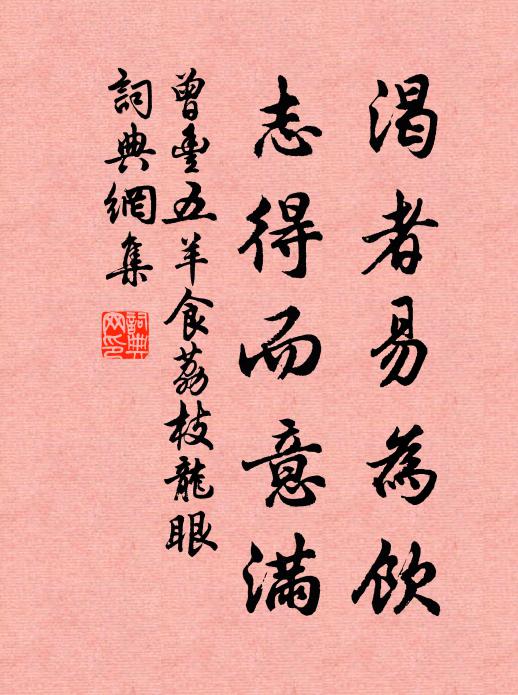 渴者易為飲
志得而意滿
曾豐五羊食荔枝龍眼
詞典網集
詞典網印